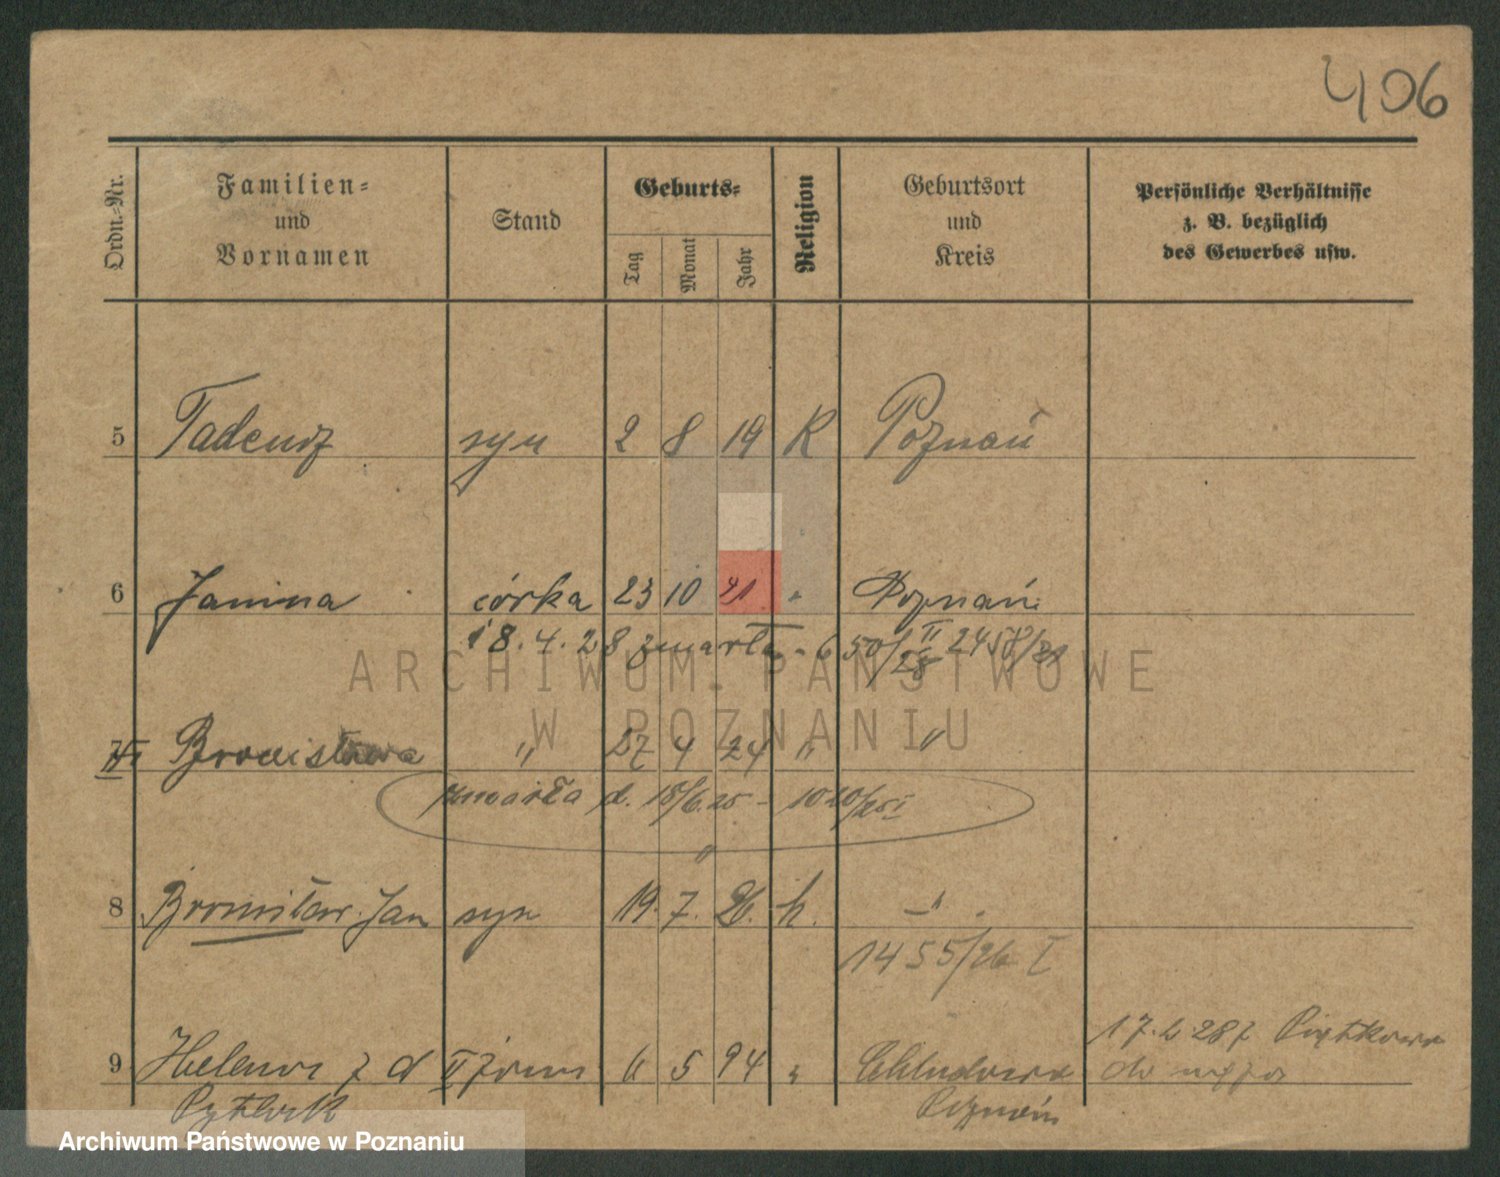 406
Ordn.-Nr.
Familien-
und
Vornamen
Stand
Geburts-
Tag
Monat
Jahr
Religion
Geburtsort
und
Kreis
Persönliche Verhältnisse
z. B. bezüglich
des Gewerbes usw.
5 Tadeusz syn 2 8 19 K Poznań
6 Janina córka 23 10 21 " Poznań
18.4.28 zmarła - 650/28 II
ARCHIWUM PAŃSTWOWE
W POZNANIU
Bronisława " 27 4 24 " "
zmarła d. 18/6.25 - 1020/25 I
8 Bronisław Jan syn 19. 7. 26. k. - " -
1455/26 I
17.2.28 z Piątkowa
9 Helena z d II żona 6 5 94 " Chludowo do męża
Pytlak Poznań
Archiwum Państwowe w Poznaniu